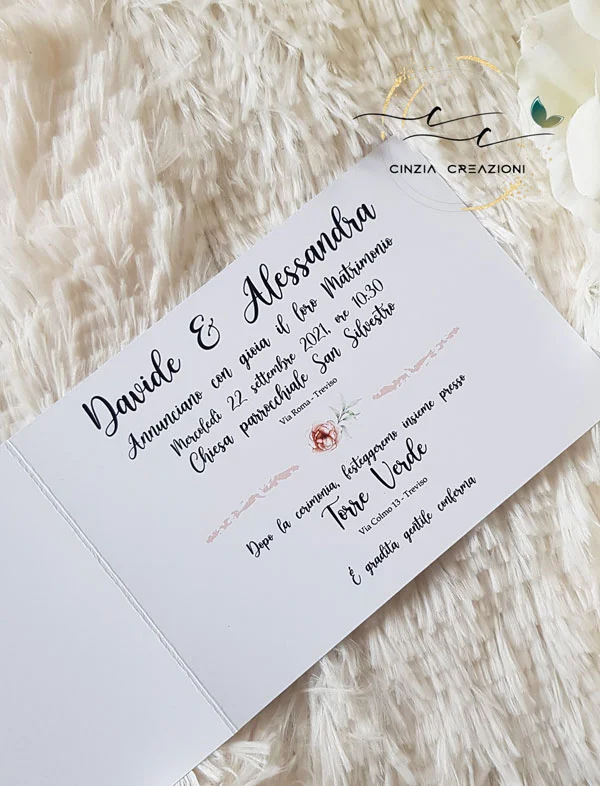 C C
CINZIA CREAZIONI
Davide & Alessandra
Annunciano con gioia il loro Matrimonio
Mercoledì 22 settembre 2021, ore 10:30
Chiesa parrocchiale San Silvestro
Via Roma - Treviso
Dopo la cerimonia, festeggeremo insieme presso
Torre Verde
Via Colmo 13 - Treviso
È gradita gentile conferma